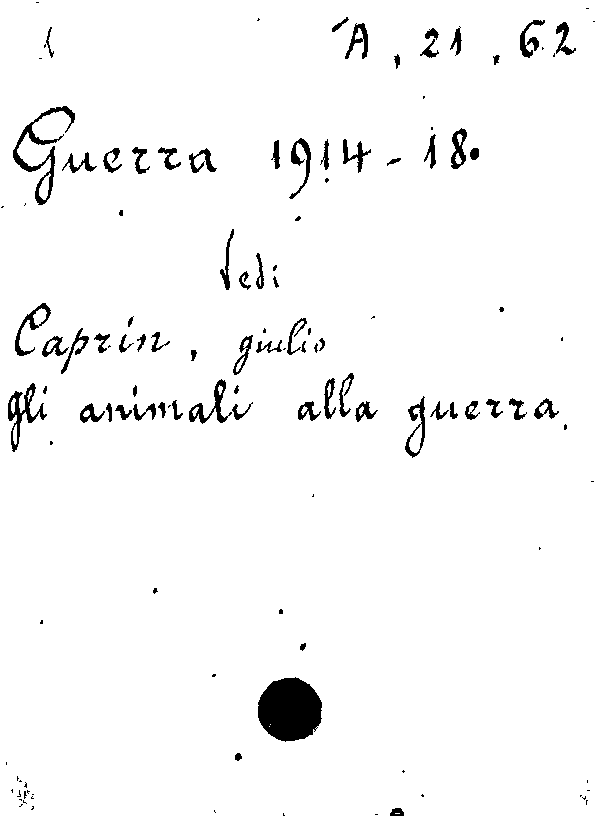 A, 21, 62
Guerra 1914-18.
Vedi
Caprin, giulio
gli animali alla guerra.